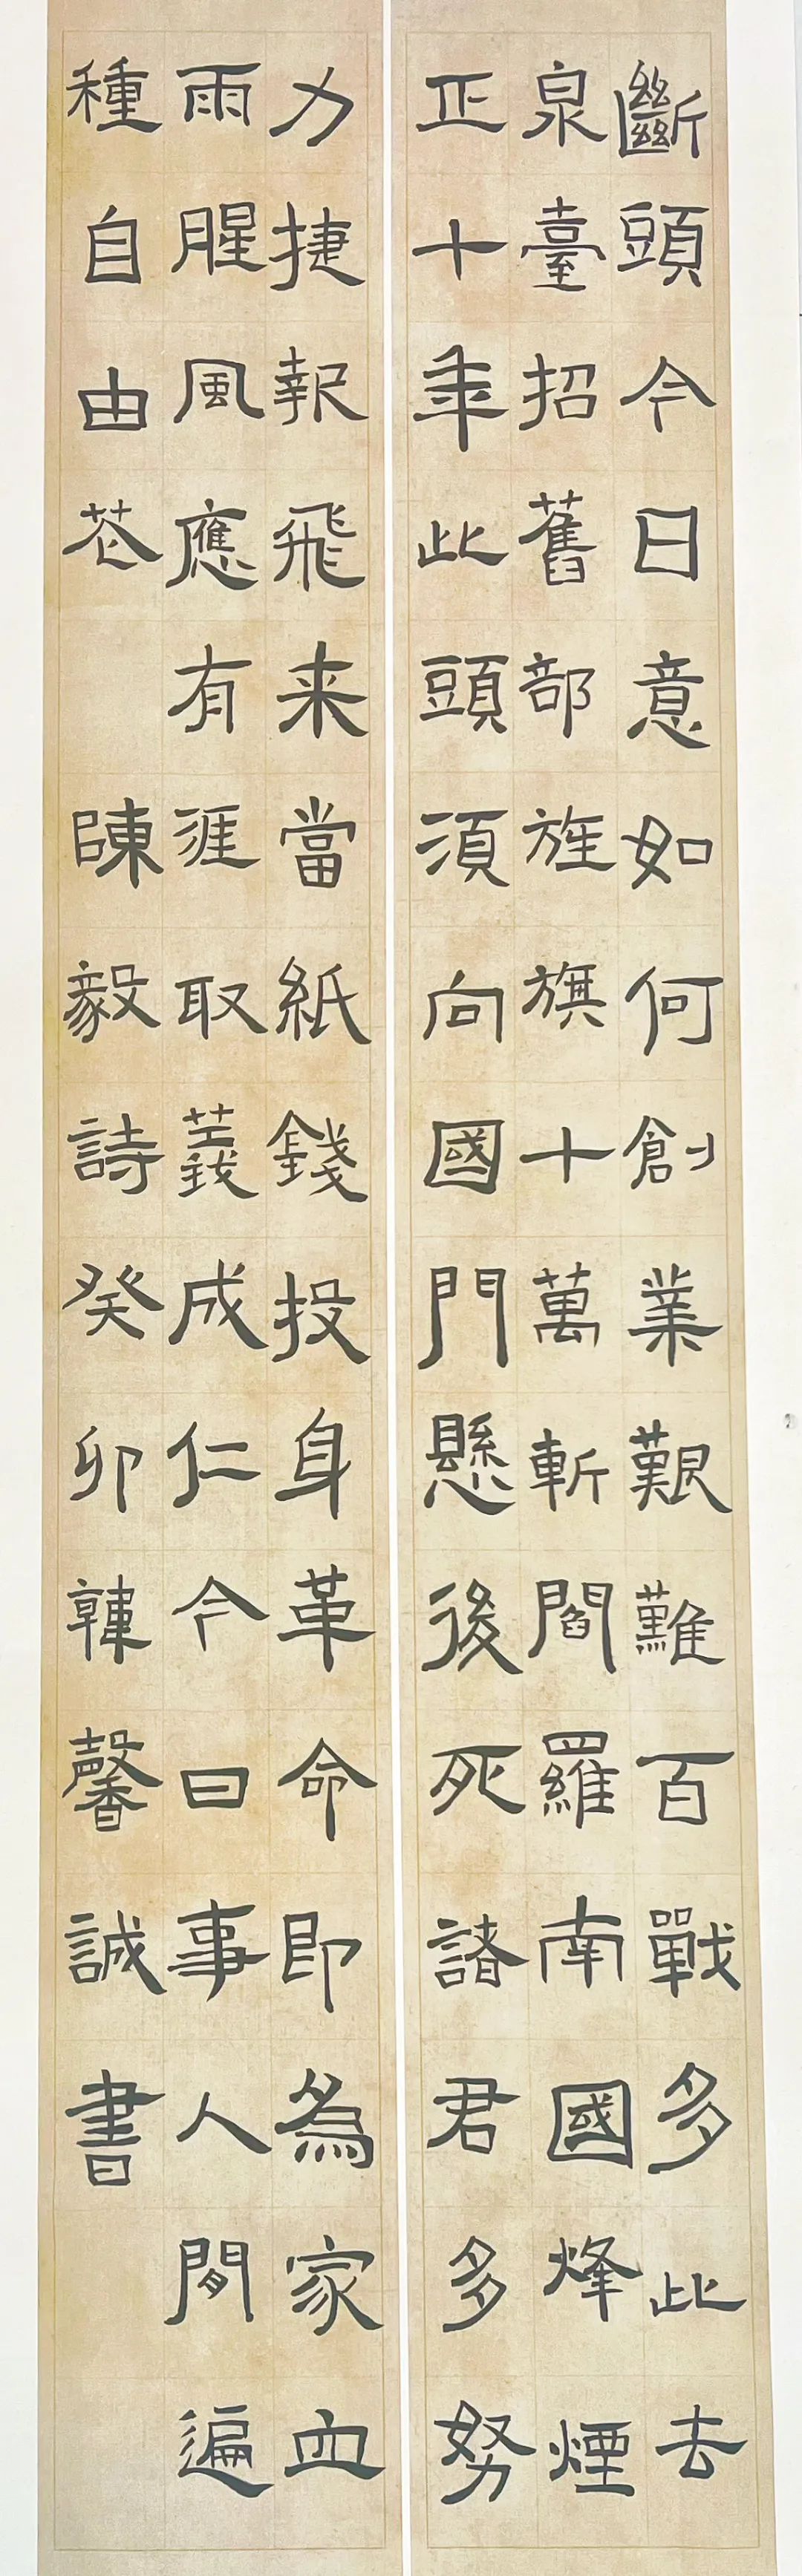 斷頭今日意如何創業艱難百戰多此去
泉臺招舊部旌旗十萬斬閻羅南國烽煙
正十年此頭須向國門懸後死諸君多努
力捷報飛来當紙錢投身革命即為家血
雨腥風應有涯取義成仁今日事人間遍
種自由花
陳毅詩癸卯韓馨誠書